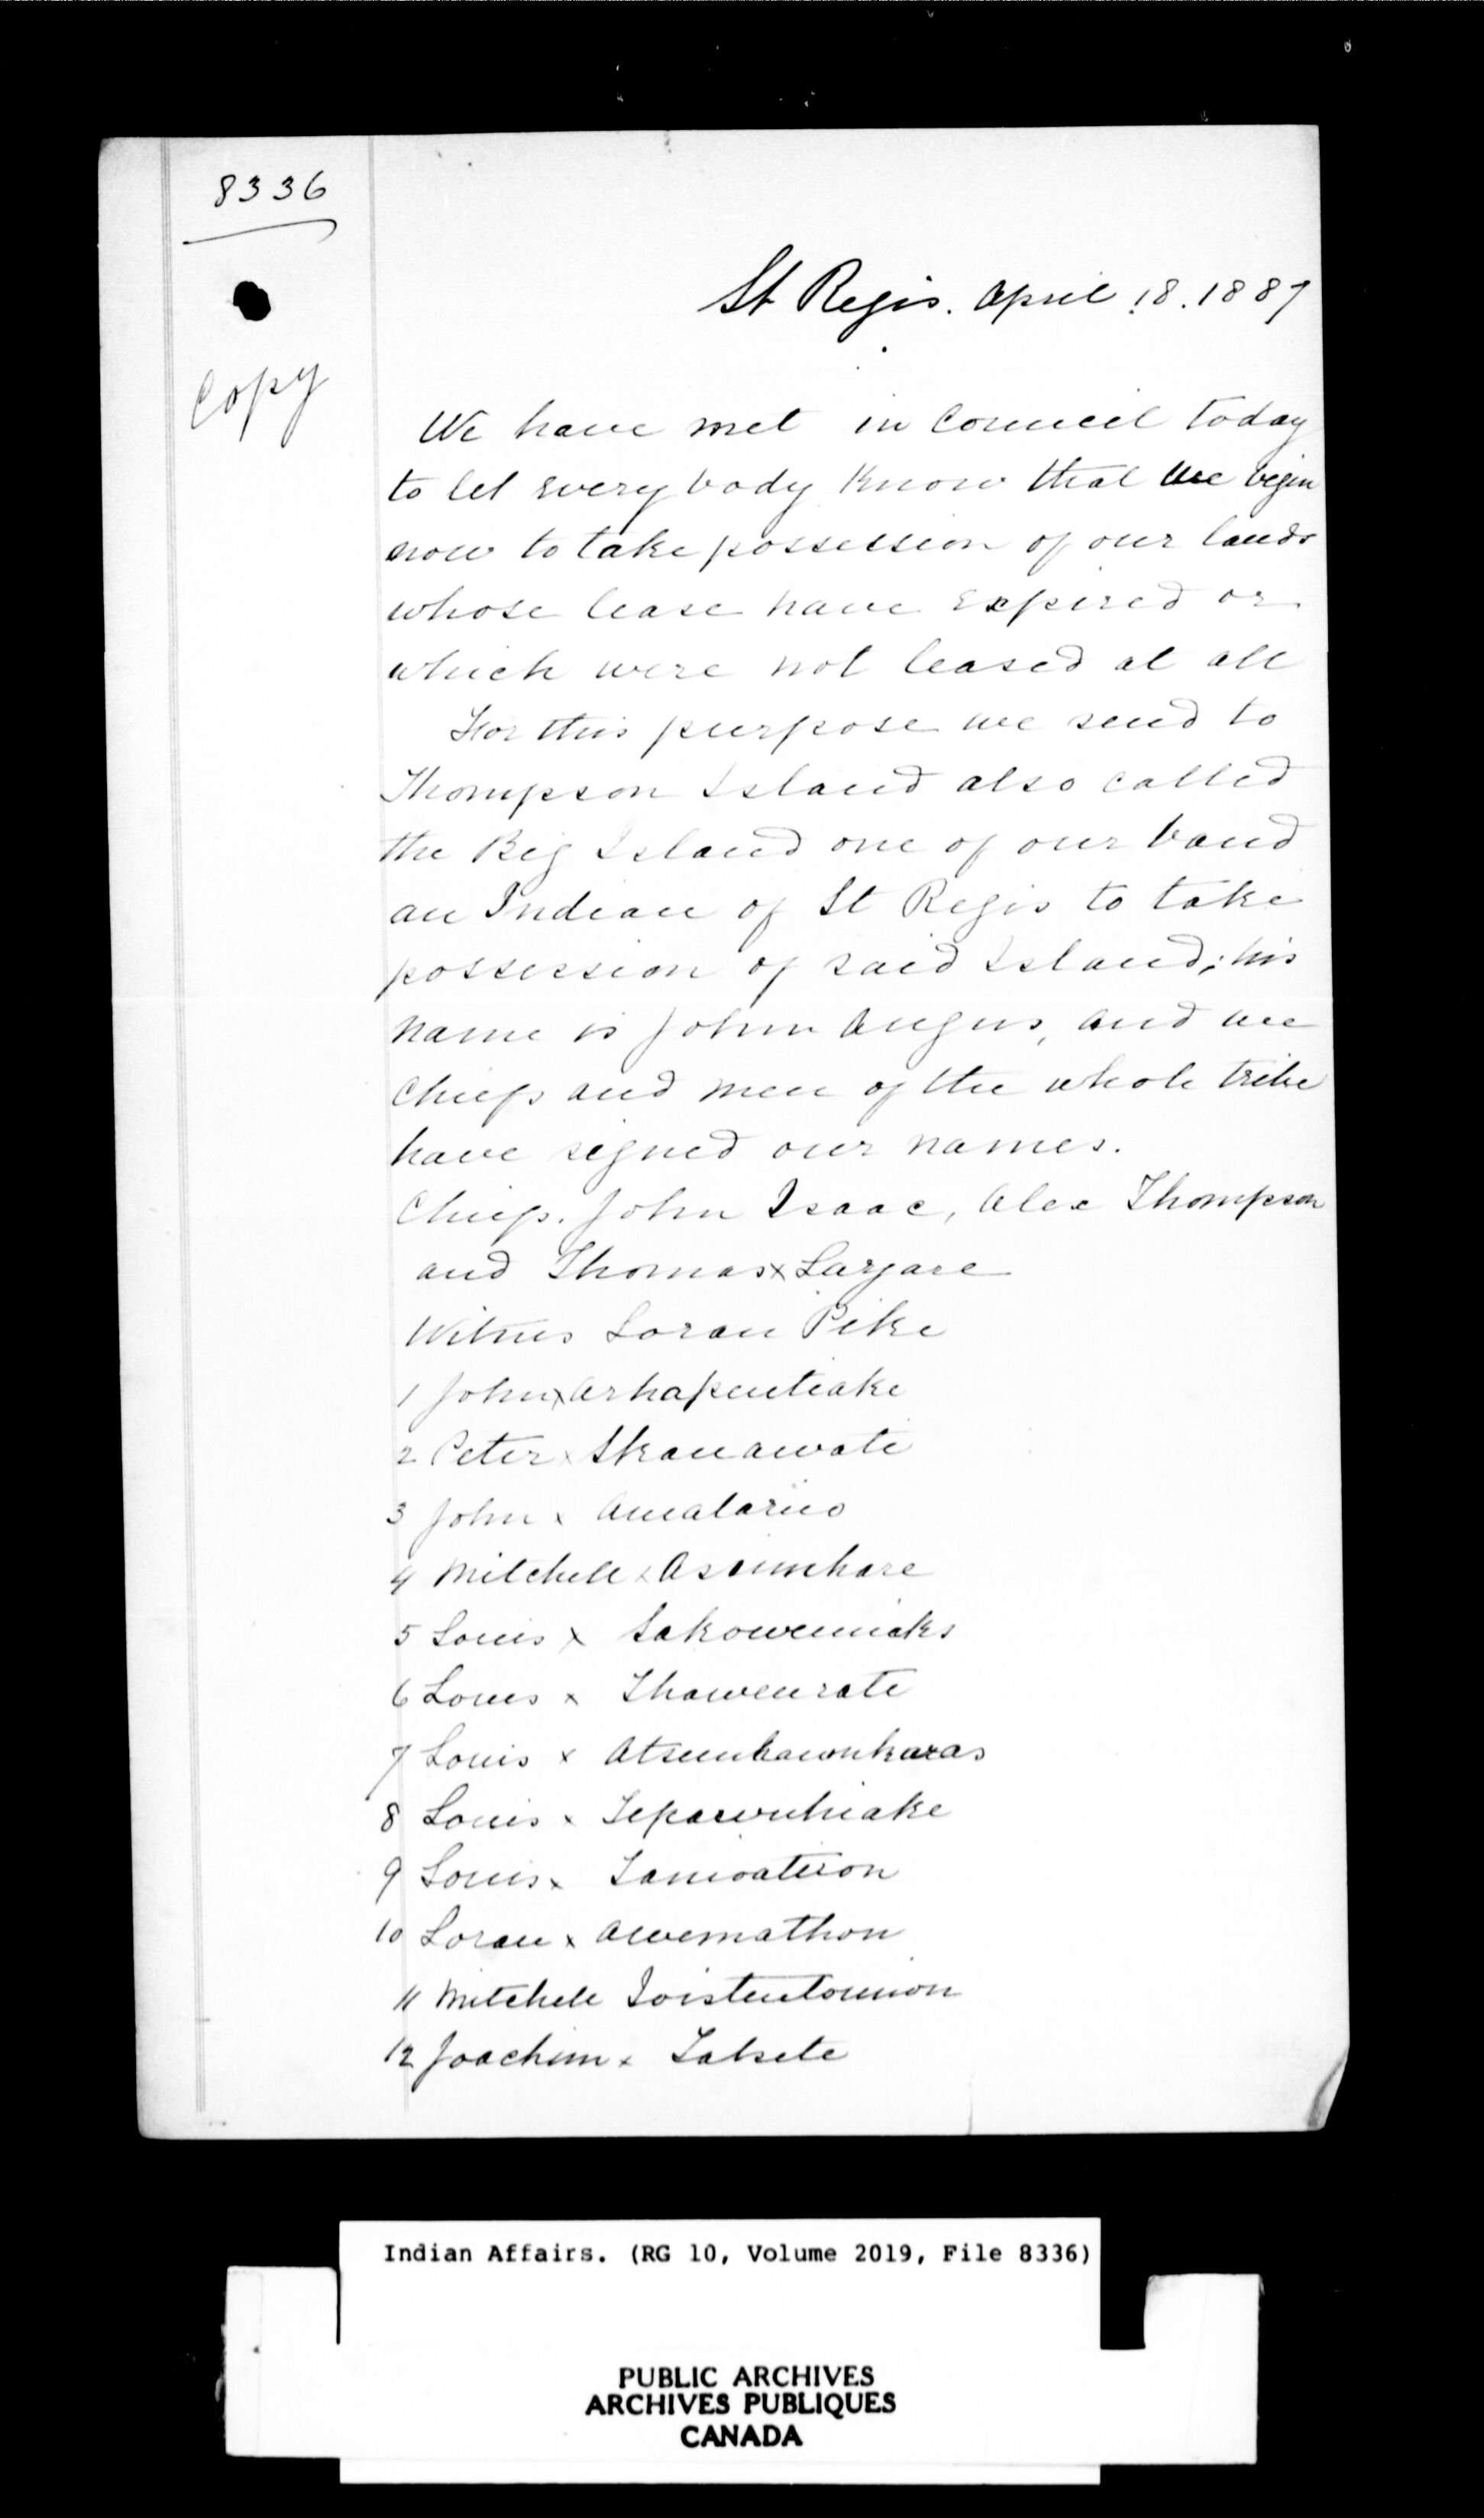 8336
Copy
St Regis. April 18. 1887
We have met in Council today
to let every body know that we begin
now to take possession of our lands
whose lease have expired or
which were not leased at all
For this purpose we send to
Thompson Island also called
the Big Island one of our band
an Indian of St Regis to take
possession of said Island; his
name is John Angus, and we
Chiefs and men of the whole tribe
have signed our names.
Chiefs. John Isaac, Alex Thompson
and Thomas x Lazare
Witness Loran Pike
1 John x Arhapentiake
2 Peter x Skanawate
3 John x
4 Mitchell x
5 Louis x Sakowenniaks
6 Louis x Thawenrate
7 Louis x
8 Louis x
9 Louis x
10 Loran x Awennathon
11 Mitchell
12 Joachim x
Indian Affairs. (RG 10, Volume 2019, File 8336)
PUBLIC ARCHIVES
ARCHIVES PUBLIQUES
CANADA